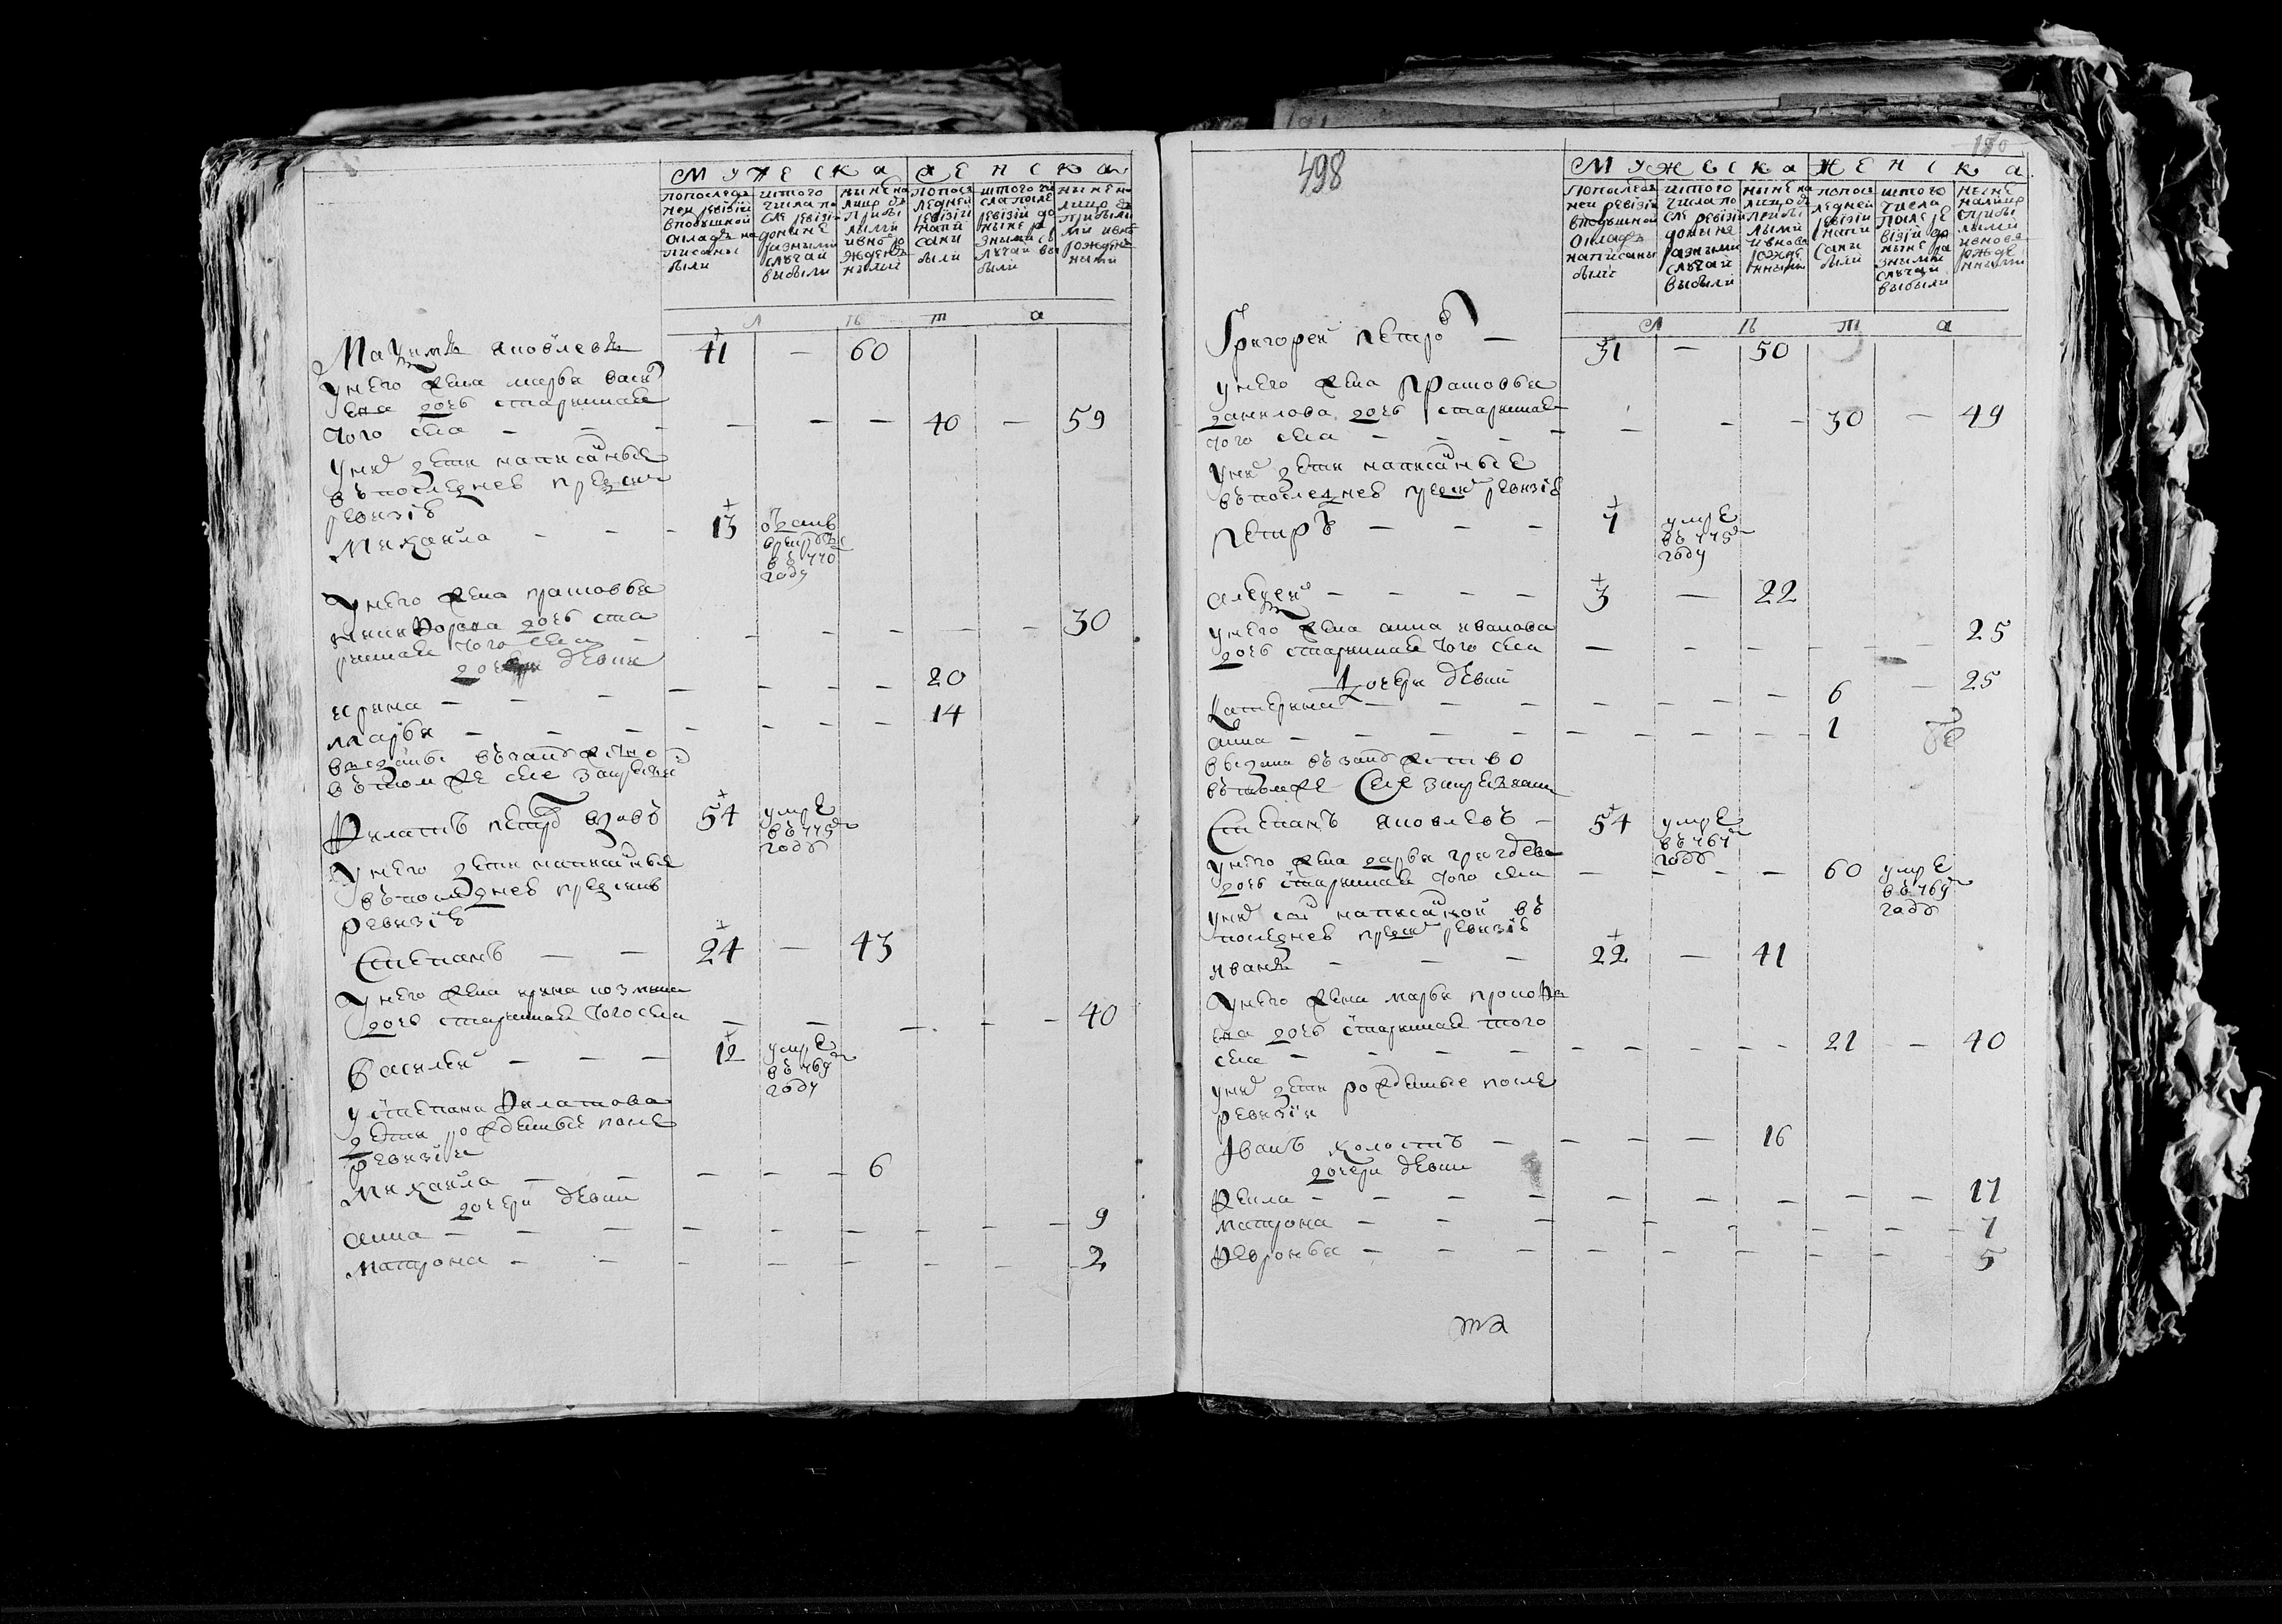 МУЖЕСКА ЖЕНСКА
попоследней ревизии вподушной окладъ написаны были
истого числа после ревизии доныне разными случаи выбыли
ныне налицо съ прибылыми ивновь рожденными
попоследней ревизии написаны были
истого числа после ревизии доныне разными случаи выбыли
ныне налицо съ прибылыми ивновь рожденными
л ѣ т а
Маѯимъ яковлевъ 41 — 60
унего жена марья
дочь старинная
того села — — — — — — 40 — 59
унихъ дети написанные
въпоследнеи пред
ревизiи
Михаила — — — 13 отданъ врекруты въ 770 году
унего жена прасковья
дочь ста
ринная того села — — — — — — 30
дочери девки
ирина — — — — — — 20
марья — — — — — — — 14
выданы въ замужство
въ томже селе за крестьян
Филатъ петровъ 54 умре въ 775м годе
унего дети написанные
въпоследнеи пред
ревизiи
Степанъ — — 24 — 43
унего жена ирина козмина
дочь старинная того села — — — — — 40
Василеи — — — 12 умре въ 769м году
устепана Филатова
дети рожденные после
ревизiи
Михаила — — — — — 6
дочери девки
анна — — — — — — — — — 9
матрона — — — — — — — — 2
498
180
МУЖЕСКА ЖЕНСКА
попоследней ревизии вподушной окладъ написаны были
истого числа после ревизии доныне разными случаи выбыли
ныне налицо съ прибылыми ивновь рожденными
попоследней ревизии написаны были
истого числа после ревизии доныне разными случаи выбыли
ныне налицо с прибылыми ивновь рожденными
л ѣ т а
Григореи петровъ — 31 — 50
унего жена прасковья
данилова дочь старинная
того села — — — — — — — 30 — 49
унихъ дети написанные
въпоследнеи пред ревизiи
петръ — — — 7 умре въ 775м году
алеѯеи — — — — 3 — 22
унего жена анна иванова
дочь старинная того села — — — — — — 25
дочери девки
Катерина — — — — — — — 6 — 25
анна — — — — — — — — — 1
выдана въ замужство
въ томже селе за крестьянина
Степанъ яковлевъ — 54 умре въ 767м годе
унего жена дарья
дочь старинная того села — — — — 60 умре въ 769м годе
унихъ сынъ написанной въ
последнеи пред ревизiи
иванъ — — — 22 — 41
унего жена марья прокофь
ева дочь старинная того
села — — — — — — — — 21 — 40
унихъ дети рожденные после
ревизiи
Иванъ холостъ — — — — 16
дочери девки
Фекла — — — — — — — — — 17
матрона — — — — — — — — 7
Февронья — — — — — — — — — 5